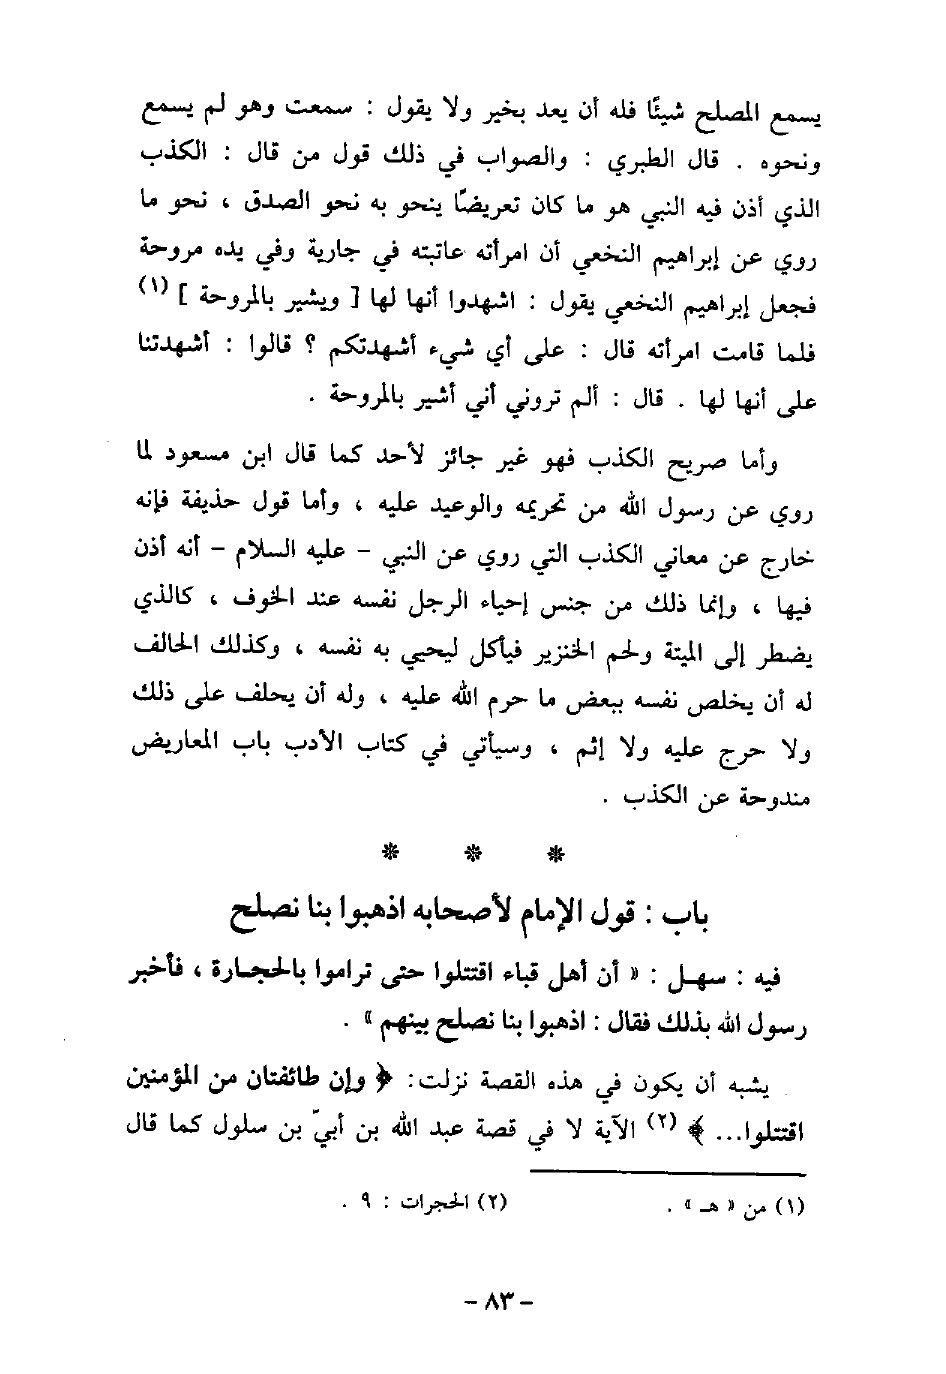 يسمع المصلح شيئًا فله أن يعد بخير ولا يقول : سمعت وهو لم يسمع
ونحوه . قال الطبري : والصواب في ذلك قول من قال : الكذب
الذي أذن فيه النبي هو ما كان تعريضًا ينحو به نحو الصدق ، نحو ما
روي عن إبراهيم النخعي أن امرأته عاتبته في جارية وفي يده مروحة
فجعل إبراهيم النخعي يقول : اشهدوا أنها لها [ ويشير بالمروحة ] (١)
فلما قامت امرأته قال : على أي شيء أشهدتكم ؟ قالوا : أشهدتنا
على أنها لها . قال : ألم تروني أني أشير بالمروحة .
وأما صريح الكذب فهو غير جائز لأحد كما قال ابن مسعود لما
روي عن رسول الله من تحريمه والوعيد عليه ، وأما قول حذيفة فإنه
خارج عن معاني الكذب التي روي عن النبي - عليه السلام - أنه أذن
فيها ، وإنما ذلك من جنس إحياء الرجل نفسه عند الخوف ، كالذي
يضطر إلى الميتة ولحم الخنزير فيأكل ليحيي به نفسه ، وكذلك الحالف
له أن يخلص نفسه ببعض ما حرم الله عليه ، وله أن يحلف على ذلك
ولا حرج عليه ولا إثم ، وسيأتي في كتاب الأدب باب المعاريض
مندوحة عن الكذب .
* * *
باب : قول الإمام لأصحابه اذهبوا بنا نصلح
فيه : سهل : « أن أهل قباء اقتتلوا حتى تراموا بالحجارة ، فأخبر
رسول الله بذلك فقال : اذهبوا بنا نصلح بينهم » .
يشبه أن يكون في هذه القصة نزلت : ﴿ وإن طائفتان من المؤمنين
اقتتلوا... ﴾ (٢) الآية لا في قصة عبد الله بن أبيّ بن سلول كما قال
(١) من « هـ » . (٢) الحجرات : ٩ .
- ٨٣ -